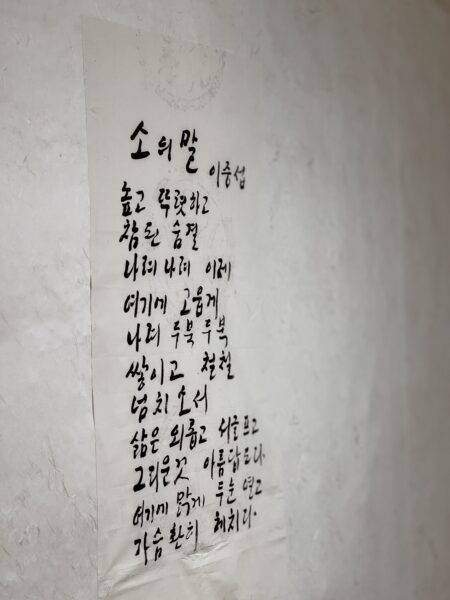 소의 말
이중섭
높고 뚜렷하고
참된 숨결
나려 나려 이제
여기에 고웁게
나려 두북 두북
쌓이고 철철
넘치소서
삶은 외롭고 서글프고
그리운것 아름답도다
여기에 맑게 두눈 열고
가슴 환히 헤치다.